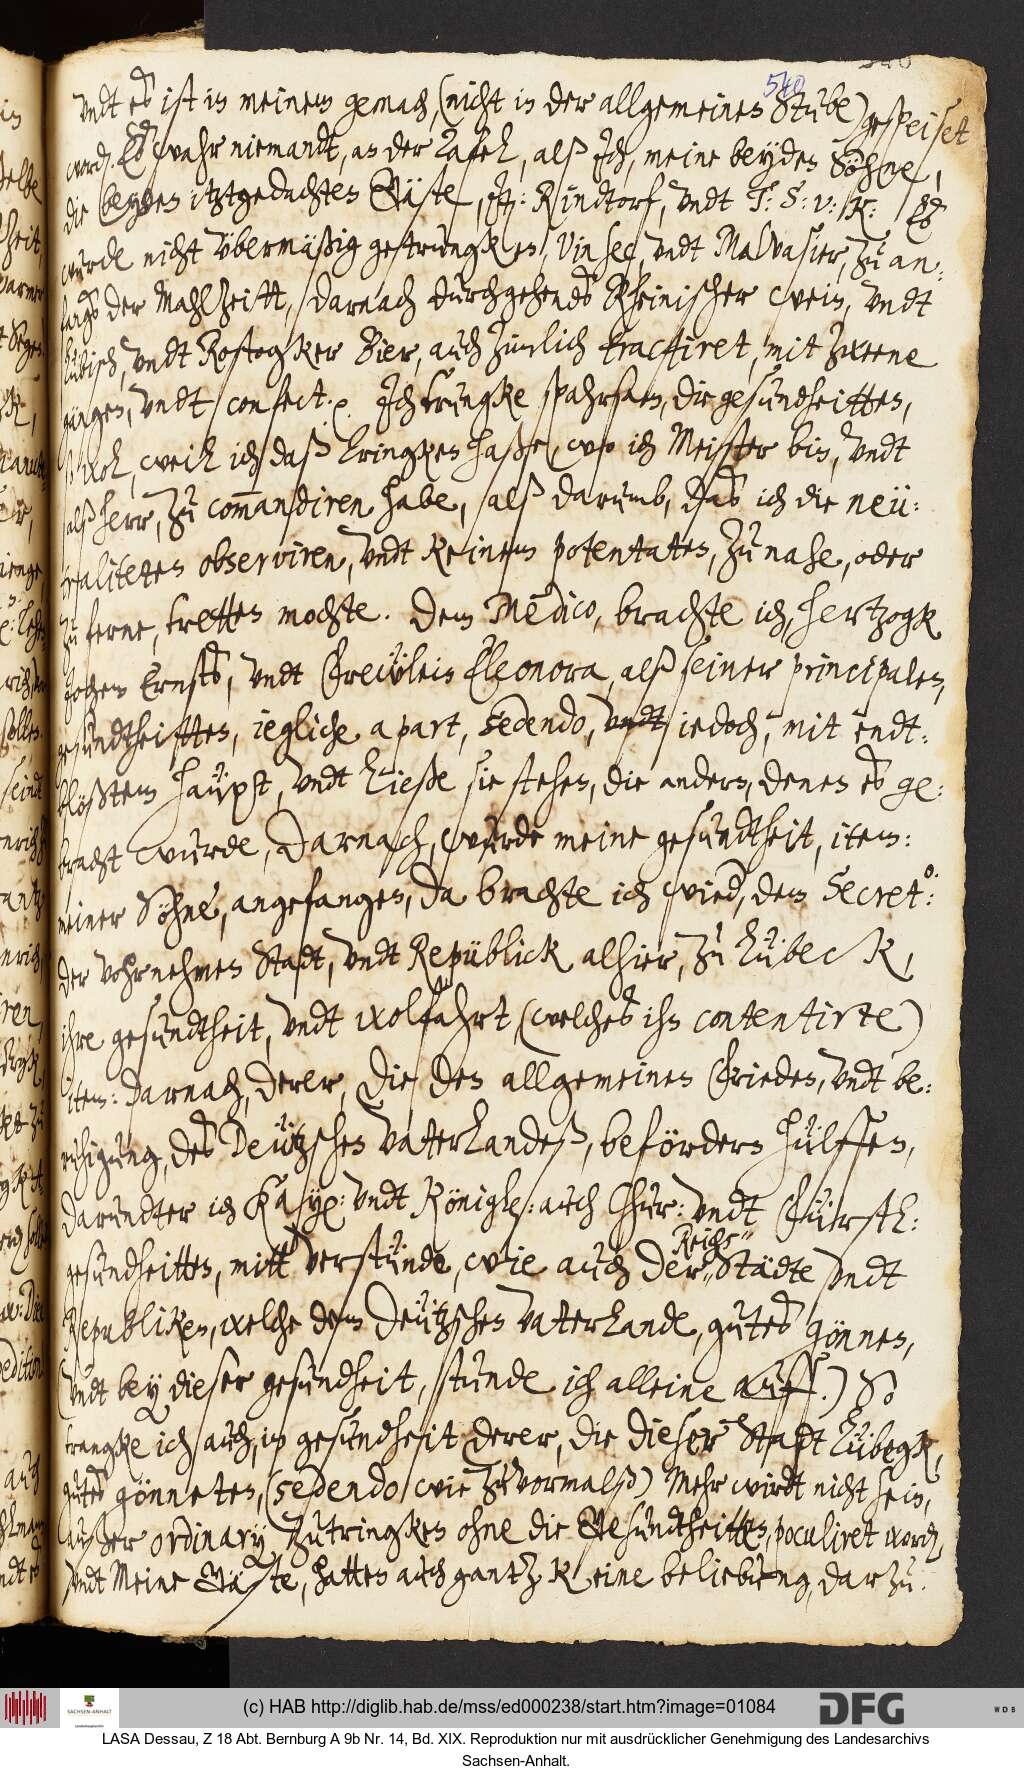 540
vndt es ist in meinem gemach, (nicht in der allgemeinen Stube) gespeiset
word. Es wahr niemandt, an der Tafel, alß Ich, meine beyden Söhne,
die beyden itztgedachten Gäste, H: Rindtorf, vndt T: S: v: K: Es
wurde nicht vbermäßig getruncken, Vin sec, vndt Malvasier, zu an-
fangs der Mahlzeitt, darnach durchgehends Rheinischer wein, vndt
Lubisch, vndt Rostogker Bier, auch zimlich tractiret, mit zweene
gängen, vndt confect. Ich trungke spahrsam, die gesundheitten,
wol, weil ich daß tringken haße, wo ich Meister bin, vndt
alß herr, zu commandiren habe, alß darumb, das ich die neu-
traliteten observiren, vndt keinem potentaten, zu nahe, oder
zu ferne, tretten mochte. Dem Medico, brachte ich, Hertzogk
Johann Ernsts, vndt Freulein Eleonora, alß seiner principalen,
gesundtheitten, iegliche apart, sedendo, vndt iedoch, mit endt-
blößtem haüpt, vndt ließe sie stehen, die andern, denen es ge-
bracht wurde, Darnach, wurde meine gesundtheit, item:
meiner Söhne, angefangen, da brachte ich wied, dem Secret.o:
der vohrnehmen Stadt, vndt Republick alhier, zu Lübeck,
ihre gesundtheit, vndt wolfahrt, (welches ihn contentirte)
item: darnach, derer, die den allgemeinen Frieden, vndt be-
ruhigung, des Deützschen Vaterlandeß, befördern hülffen,
darundter ich Kayß: vndt Königl: auch Chur: vndt Fürstl:
gesundheitten, mitt verstünde, wie auch der Reichs- Städte vndt
Republiken, welche dem Deützschen Vaterlande, gutes gönnen,
(vndt bey dieser gesundheit, stunde ich alleine auff.) So
trangke ich auch, in gesundheit derer, die dieser Stadt Lübegk,
gutes gönneten, (sedendo wie zuvormalß) Mehr wirdt nicht sein,
außer ordinary zutringken ohne die Gesundtheitten, poculiret word,
vndt Meine Gäste, hatten auch gantz keine beliebung, darzu.
(c) HAB http://diglib.hab.de/mss/ed000238/start.htm?image=01084
SACHSEN-ANHALT
DFG
WDB
LASA Dessau, Z 18 Abt. Bernburg A 9b Nr. 14, Bd. XIX. Reproduktion nur mit ausdrücklicher Genehmigung des Landesarchivs
Sachsen-Anhalt.